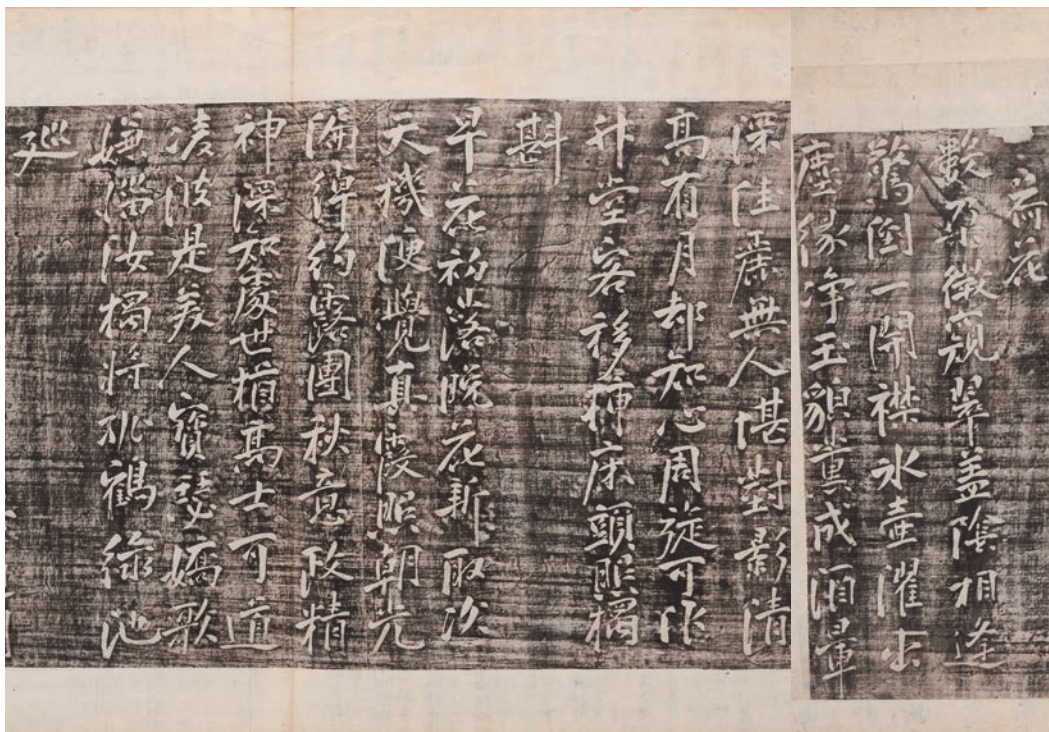 荷花
數朶微窺翠盖陰相逢
驚倒一開襟氷壺濯出
塵緣净玉貌真成酒暈
深佳麗無人堪對影清
高有月却知心周旋可作
升堂客移種床頭照獨
斟
早花初落晚花新取次
天機便覺真霞照朝光
偏得約露團秋意政精
神深知處世猶高士可道
凌波是美人寶瑟嬌歌
嫌溷汝獨將孤鶴繞池
廵